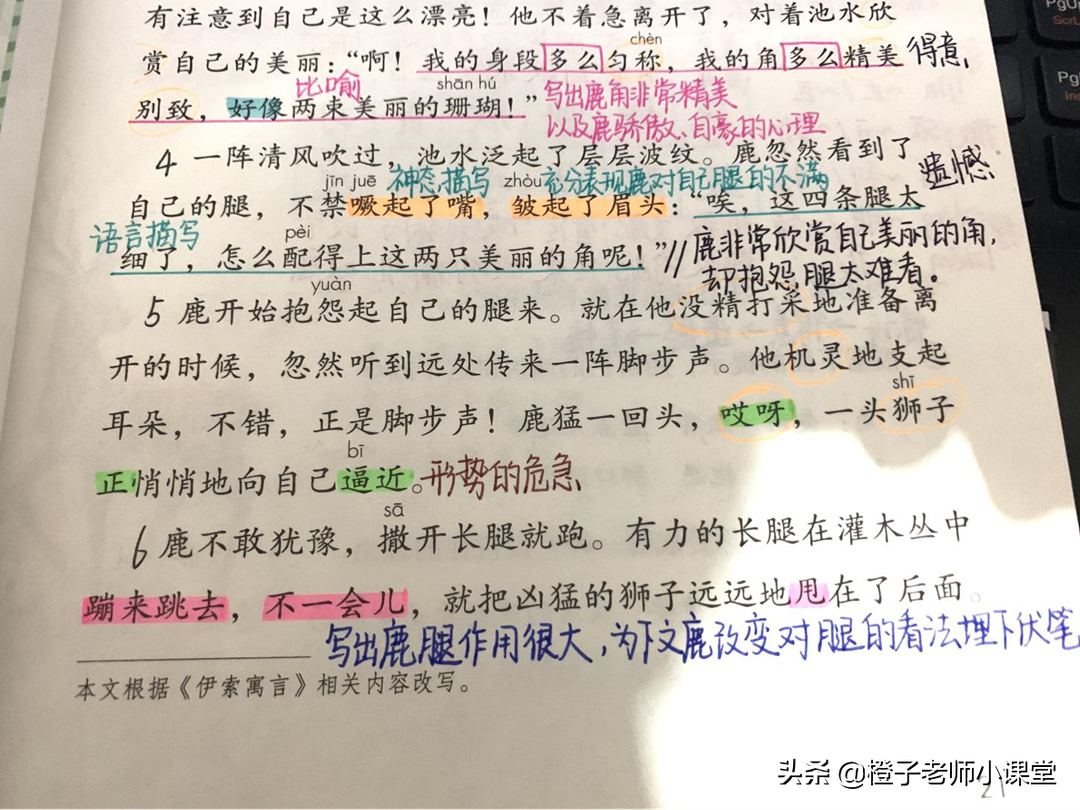 有注意到自己是这么漂亮！他不着急离开了，对着池水欣
chèn
赏自己的美丽：“啊！我的身段多么匀称，我的角多么精美 得意
比喻 shān hú 写出鹿角非常精美
别致，好像两束美丽的珊瑚！”
以及鹿骄傲、自豪的心理
4 一阵清风吹过，池水泛起了层层波纹。鹿忽然看到了
jīn juē 神态描写 zhòu 充分表现鹿对自己腿的不满 遗憾
自己的腿，不禁噘起了嘴，皱起了眉头：“唉，这四条腿太
语言描写 pèi
细了，怎么配得上这两只美丽的角呢！”// 鹿非常欣赏自己美丽的角，
却抱怨腿太难看。
yuàn
5 鹿开始抱怨起自己的腿来。就在他没精打采地准备离
开的时候，忽然听到远处传来一阵脚步声。他机灵地支起
shī
耳朵，不错，正是脚步声！鹿猛一回头，哎呀，一头狮子
bī
正悄悄地向自己逼近。形势的危急
sā
6 鹿不敢犹豫，撒开长腿就跑。有力的长腿在灌木丛中
蹦来跳去，不一会儿，就把凶猛的狮子远远地甩在了后面。
写出鹿腿作用很大，为下文鹿改变对腿的看法埋下伏笔
本文根据《伊索寓言》相关内容改写。
头条 @橙子老师小课堂
21
PgUp